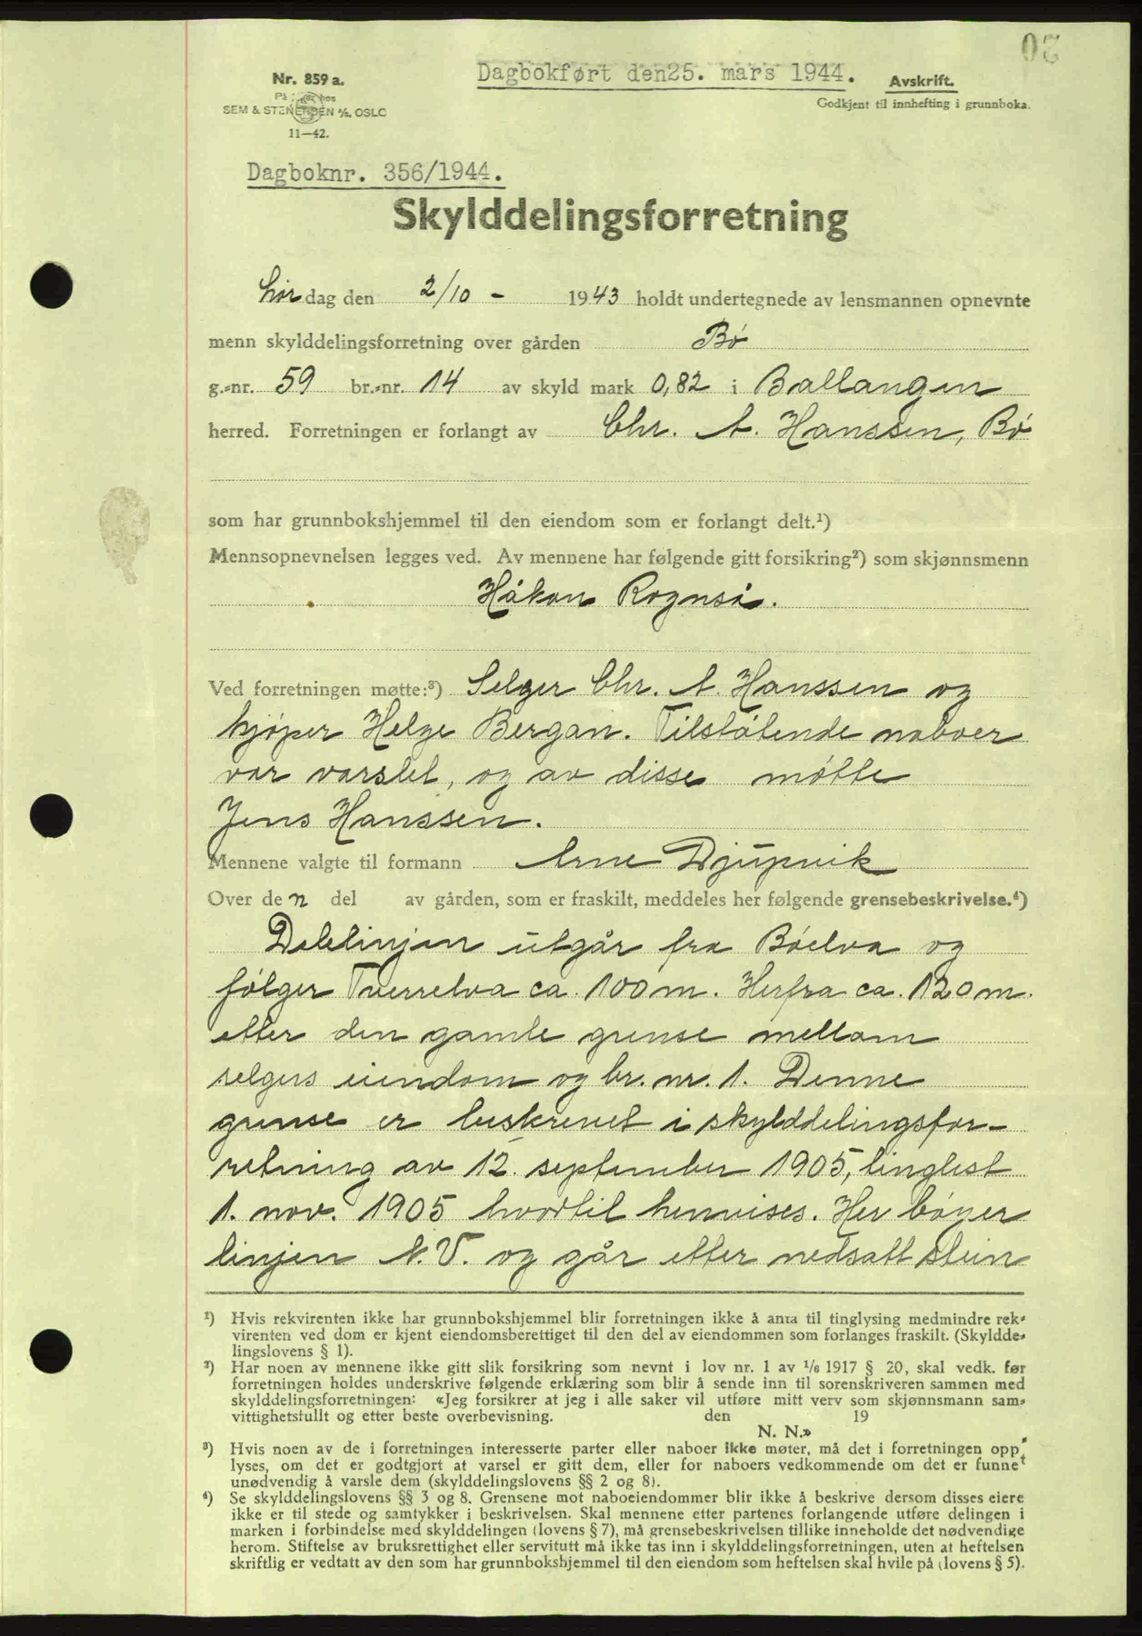 Dagbokført den 25. mars 1944.
Avskrift.
Nr. 859 a.
Godkjent til innhefting i grunnboka.
SEM & STENERSEN A/S, OSLO
11—42.
Dagboknr. 356/1944.
Skylddelingsforretning
Lør dag den 2/10 - 1943 holdt undertegnede av lensmannen opnevnte
menn skylddelingsforretning over gården Bø
g.-nr. 59 br.-nr. 14 av skyld mark 0,82 i Ballangen
herred. Forretningen er forlangt av Chr. A. Hanssen, Bø
som har grunnbokshjemmel til den eiendom som er forlangt delt.¹)
Mennsopnevnelsen legges ved. Av mennene har følgende gitt forsikring²) som skjønnsmenn
Håkon Rognså.
Ved forretningen møtte:³) Selger Chr. A. Hanssen og
kjøper Helge Bergan. Tilstøtende naboer
var varslet, og av disse møtte
Jens Hanssen.
Mennene valgte til formann Arne Djupvik
Over den del av gården, som er fraskilt, meddeles her følgende grensebeskrivelse.⁴)
Delelinjen utgår fra Bøelva og
følger Tverrelva ca. 100 m. Herfra ca. 120 m.
etter den gamle grense mellom
selgers eiendom og br. nr. 1. Denne
grense er beskrevet i skylddelingsfor-
retning av 12. september 1905, tinglest
1. nov. 1905 hvortil henvises. Her bøyer
linjen N.V. og går etter nedsatt stein
¹) Hvis rekvirenten ikke har grunnbokshjemmel blir forretningen ikke å anta til tinglysing medmindre rek-
virenten ved dom er kjent eiendomsberettiget til den del av eiendommen som forlanges fraskilt. (Skyldde-
lingslovens § 1).
²) Har noen av mennene ikke gitt slik forsikring som nevnt i lov nr. 1 av 1/6 1917 § 20, skal vedk. før
forretningen holdes underskrive følgende erklæring som blir å sende inn til sorenskriveren sammen med
skylddelingsforretningen: «Jeg forsikrer at jeg i alle saker vil utføre mitt verv som skjønnsmann sam-
vittighetsfullt og etter beste overbevisning. den 19
N. N.»
³) Hvis noen av de i forretningen interesserte parter eller naboer ikke møter, må det i forretningen opp-
lyses, om det er godtgjort at varsel er gitt dem, eller for naboers vedkommende om det er funnet
unødvendig å varsle dem (skylddelingslovens §§ 2 og 8).
⁴) Se skylddelingslovens §§ 3 og 8. Grensene mot naboeiendommer blir ikke å beskrive dersom disses eiere
ikke er til stede og samtykker i beskrivelsen. Skal mennene etter partenes forlangende utføre delingen i
marken i forbindelse med skylddelingen (lovens § 7), må grensebeskrivelsen tillike inneholde det nødvendige
herom. Stiftelse av bruksrettighet eller servitutt må ikke tas inn i skylddelingsforretningen, uten at heftelsen
skriftlig er vedtatt av den som har grunnbokshjemmel til den eiendom som heftelsen skal hvile på (lovens § 5).